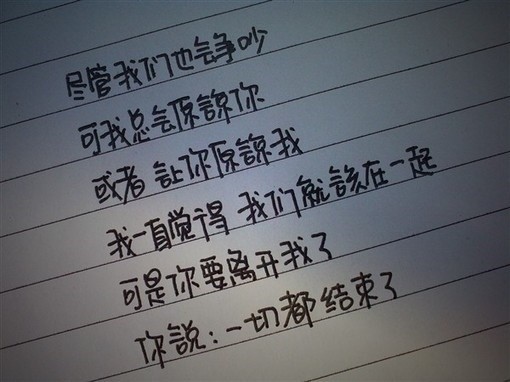 尽管我们也会争吵
可我总会原諒你
或者 让你原諒我
我一直觉得 我们就該在一起
可是你要离开我了
你說：一切都结束了